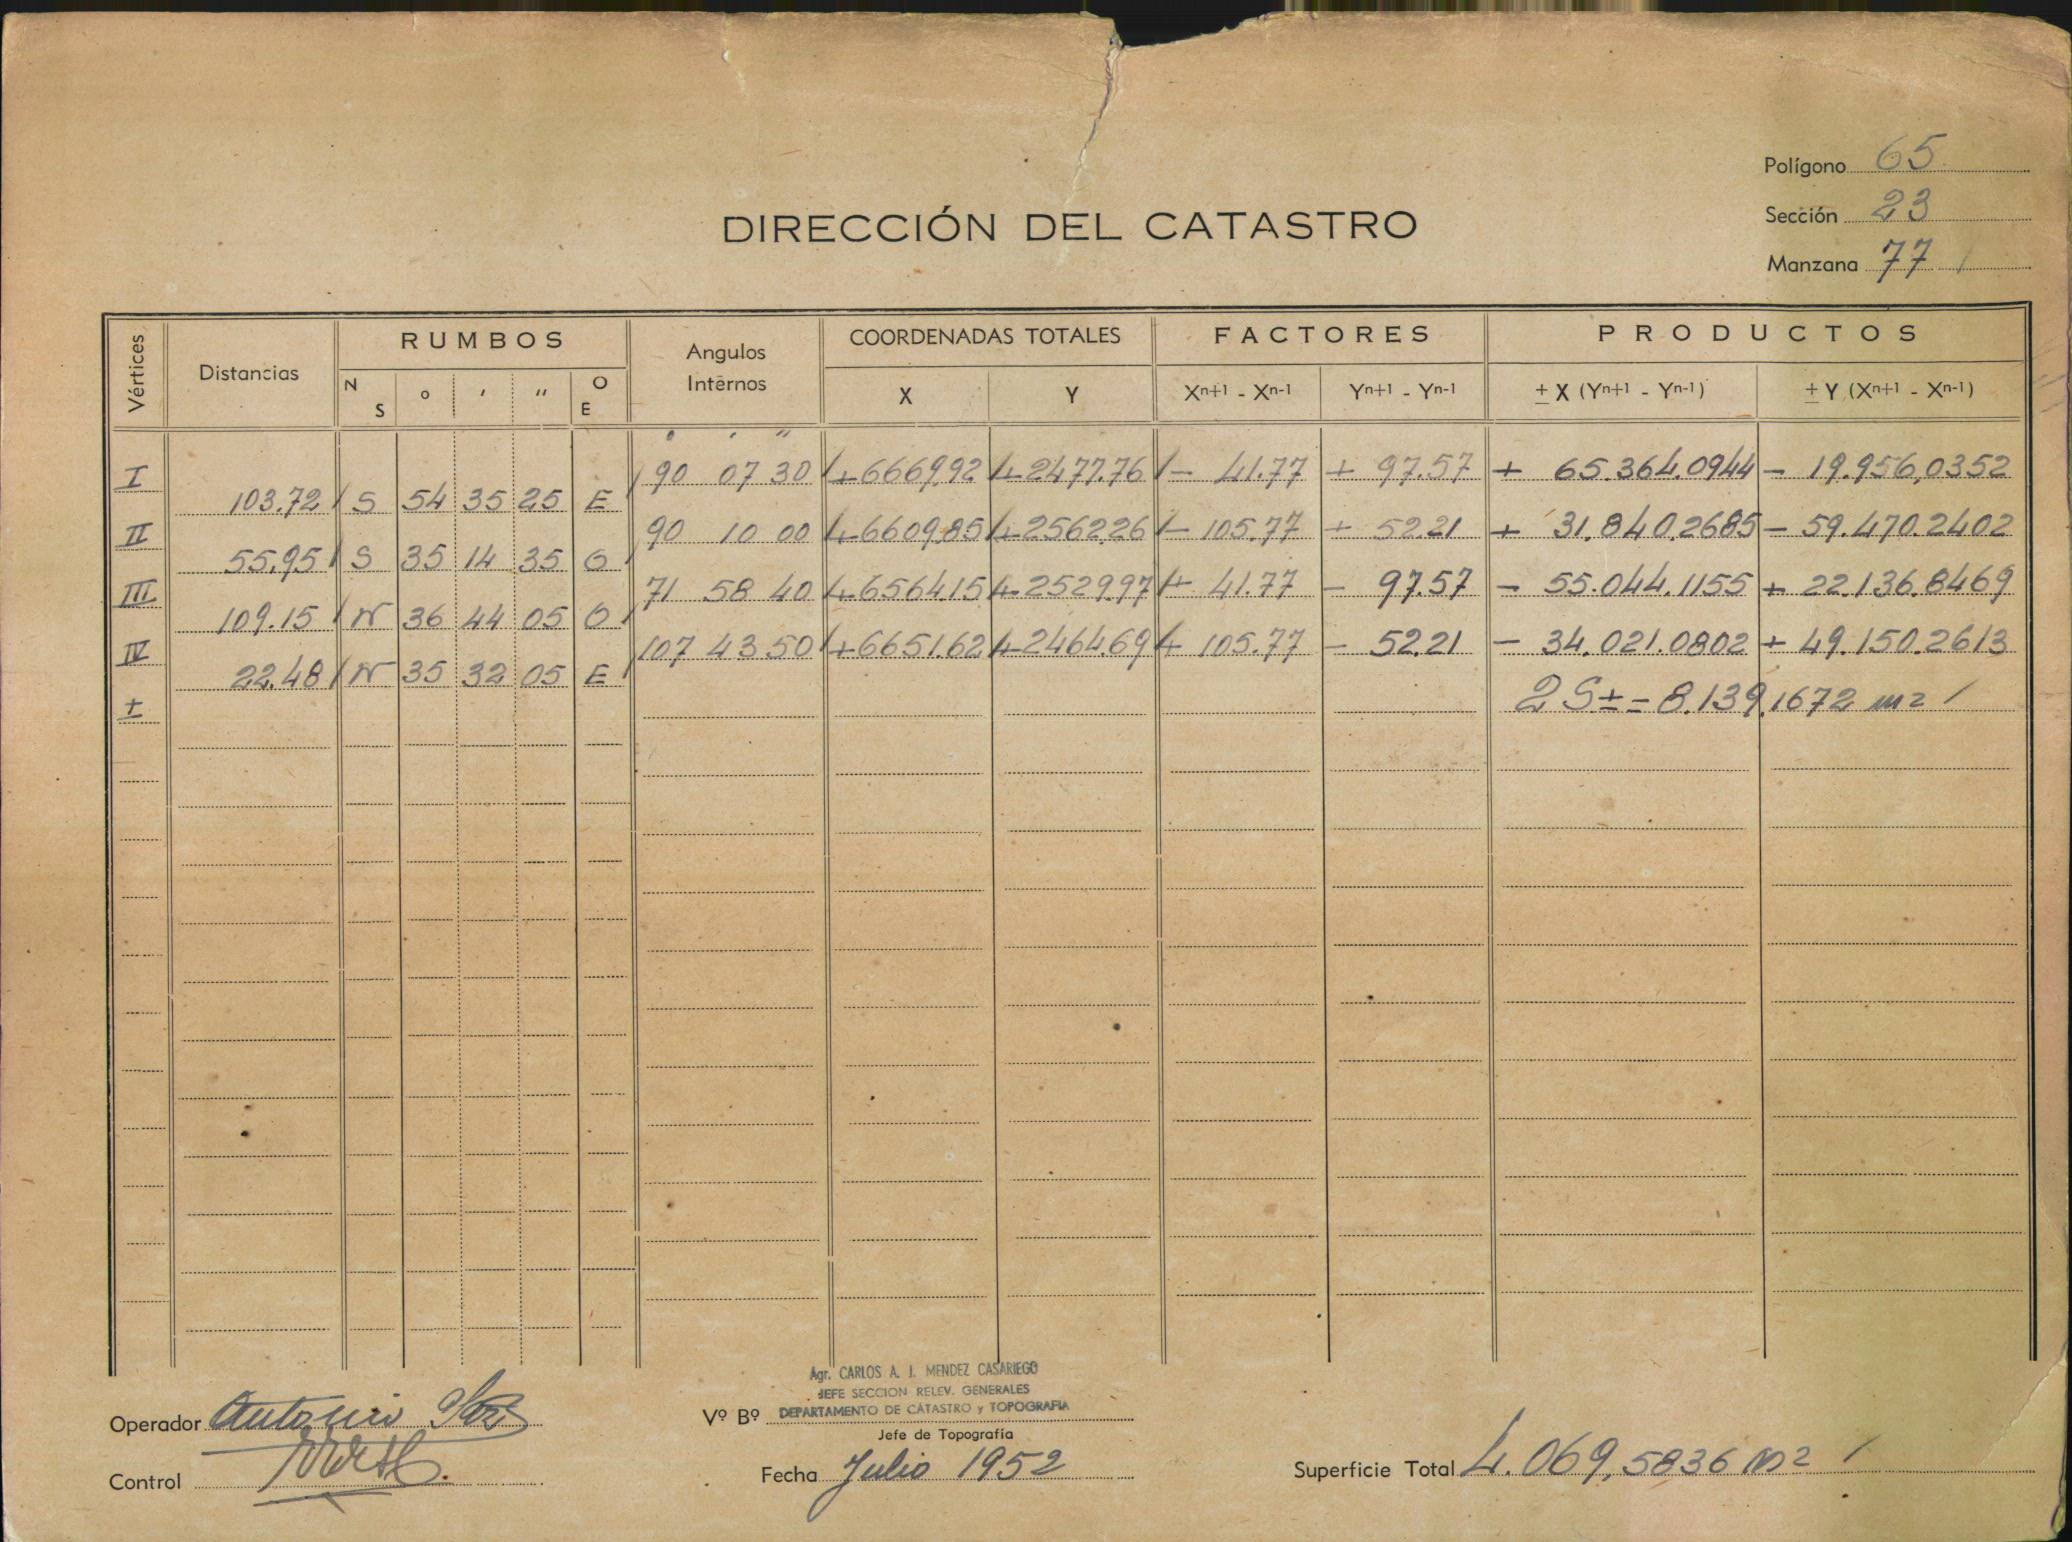 Polígono 65
Sección 23
Manzana 77
DIRECCIÓN DEL CATASTRO
Vértices Distancias RUMBOS Angulos Internos COORDENADAS TOTALES FACTORES PRODUCTOS
N S ° ' " O E X Y Xn+1 - Xn-1 Yn+1 - Yn-1 ± X (Yn+1 - Yn-1) ± Y (Xn+1 - Xn-1)
° ' "
I 90 07 30 +6669.92 +2477.76 - 41.77 + 97.57 + 65.364.0944 - 19.956,0352
103.72 S 54 35 25 E
II 90 10 00 +6609.85 +2562.26 - 105.77 + 52.21 + 31.840.2685 - 59.470.2402
55.95 S 35 14 35 O
III 71 58 40 +6564.15 +2529.97 + 41.77 - 97.57 - 55.044.1155 + 22.136.8469
109.15 N 36 44 05 O
IV 107 43 50 +6651.62 +2464.69 + 105.77 - 52.21 - 34.021.0802 + 49.150.2613
22.48 N 35 32 05 E
± 2 S ± = 8.139,1672 m2
Agr. CARLOS A. J. MENDEZ CASARIEGO
JEFE SECCION RELEV. GENERALES
Operador Antonio Vº Bº DEPARTAMENTO DE CATASTRO y TOPOGRAFIA
Jefe de Topografía
Control Fecha Julio 1952 Superficie Total 4.069,5836 m2